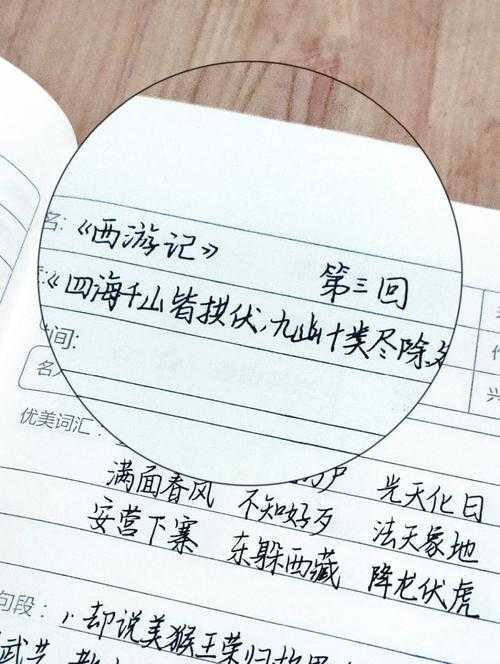 名:《西游记》
第三回
《四海千山皆拱伏,九幽十类尽除名
时间:
名
优美词汇:
满面春风 不知好歹 光天化日
安营下寨 东躲西藏 降龙伏虎
法天象地
句段: 1.却说美猴王荣归故里
武艺